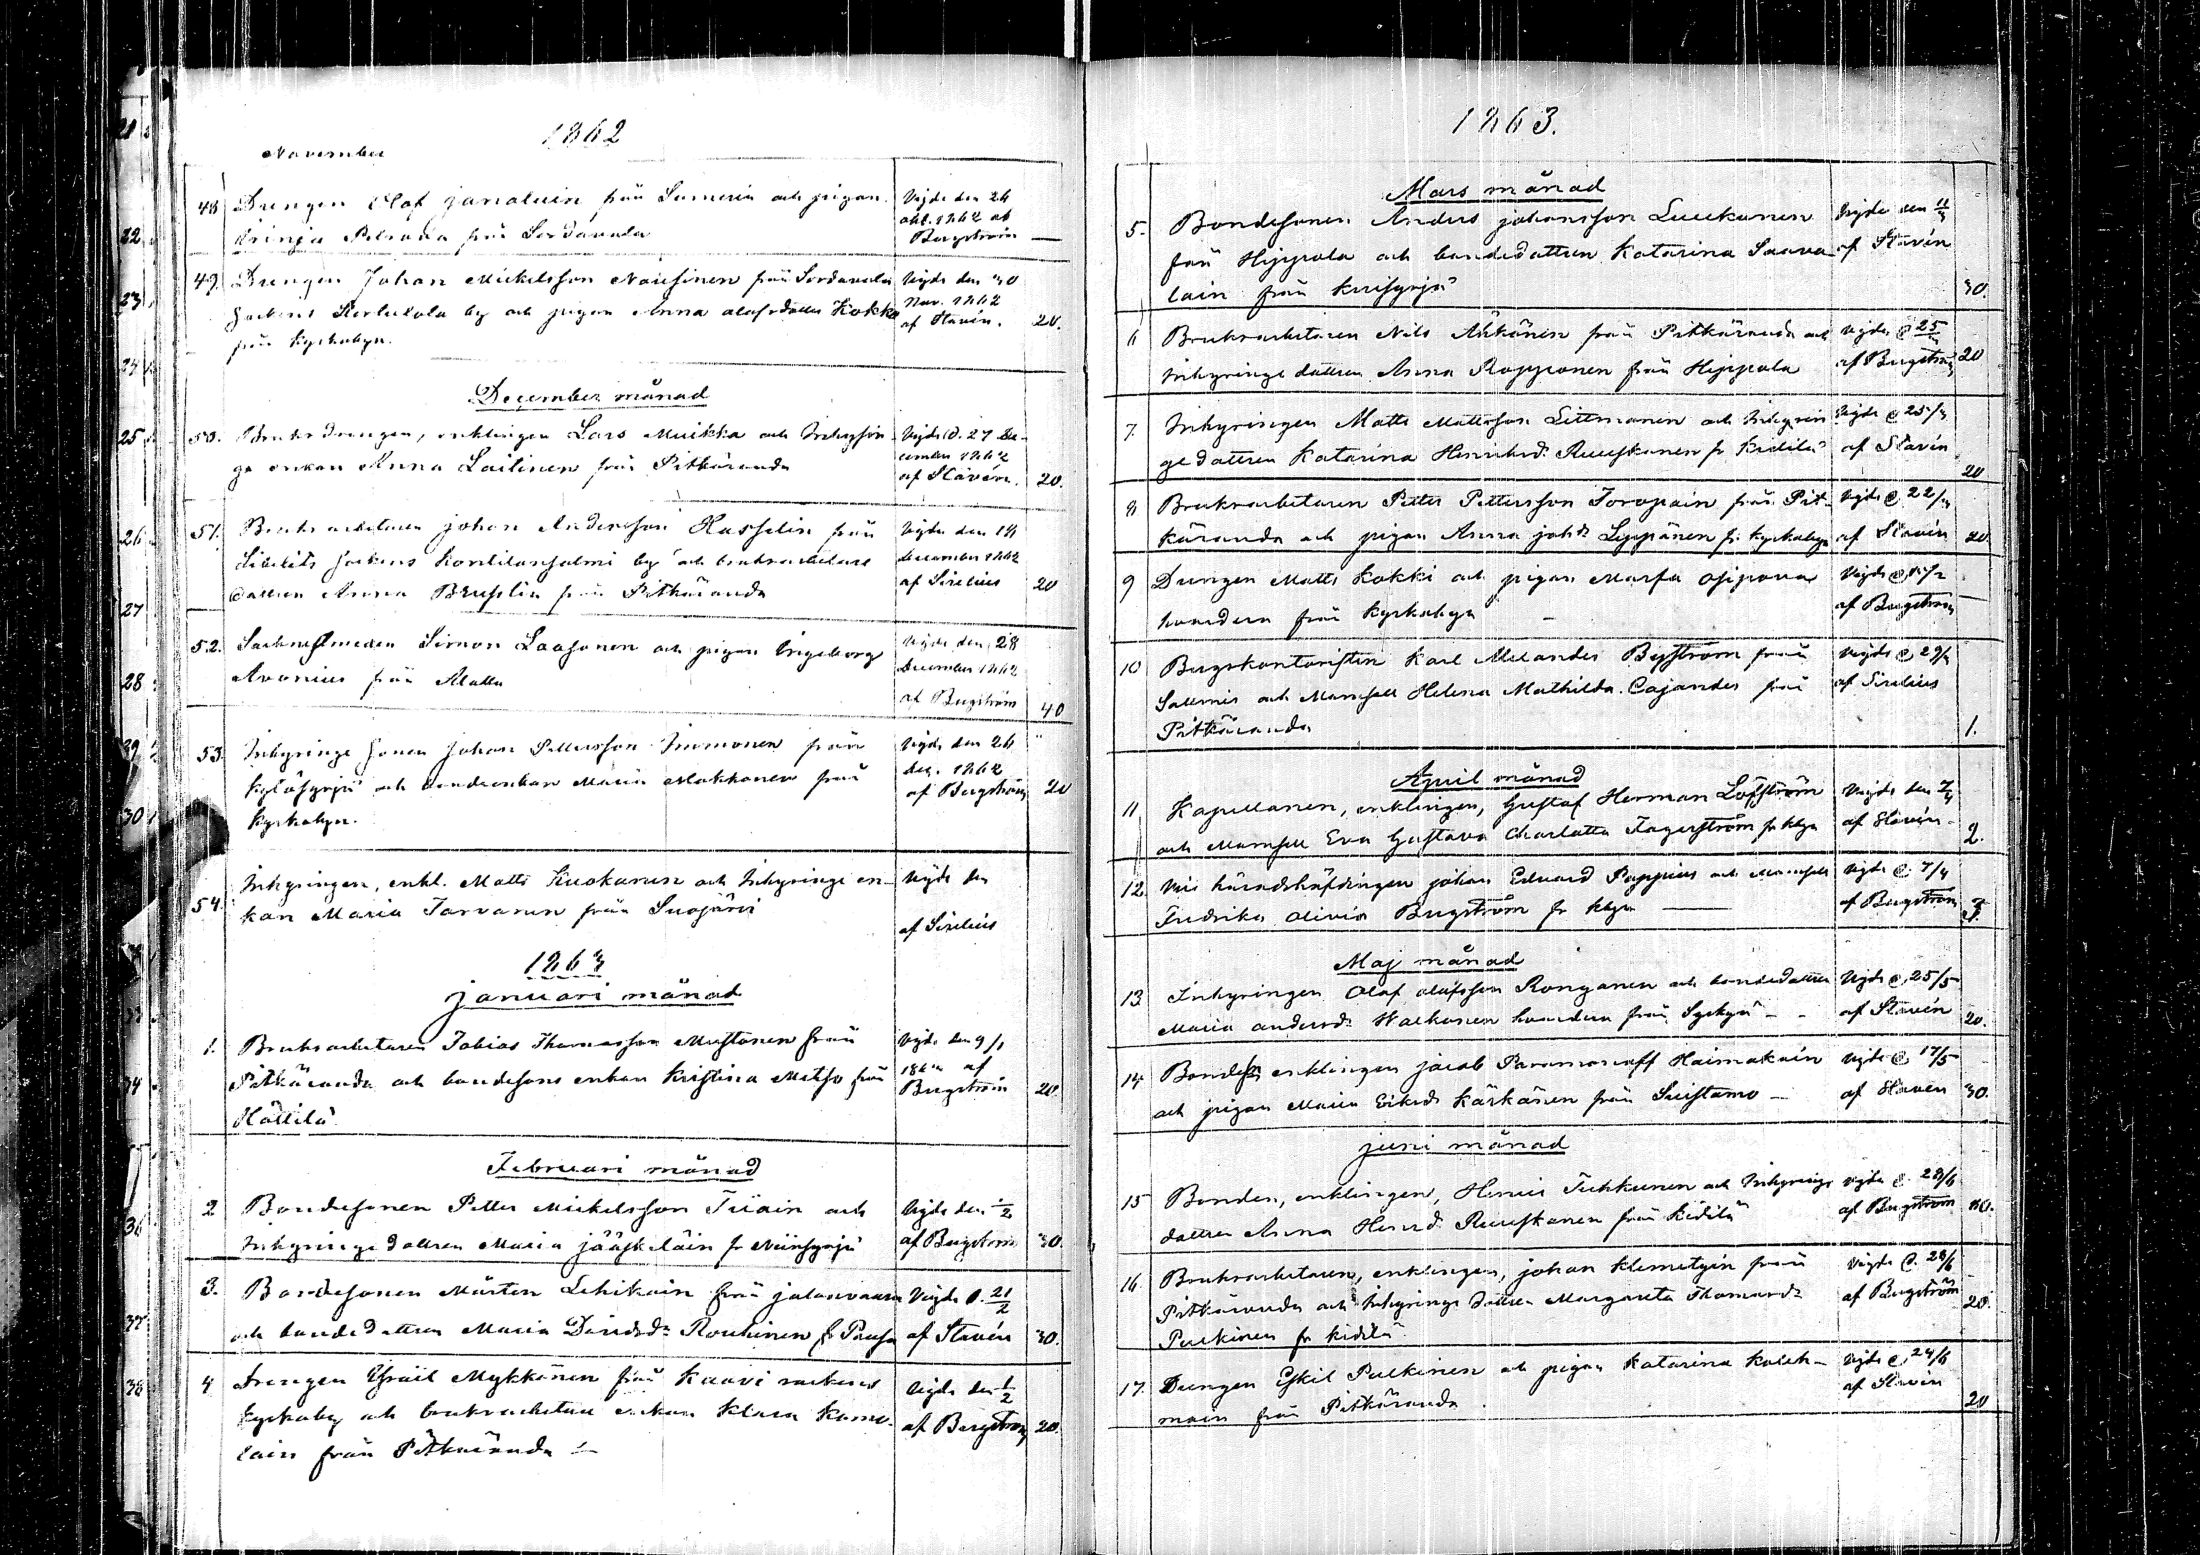 1862
November
48 Drengen Olof från och pigan
från Sordavala
Vigde den 26
okt. 1862 af
Bergström
49. Drengen Johan Mickelsson Nousinen från Sordavala
by och pigan Anna Kokko
från Kyrkobyn.
Vigde den 30
Nov. 1862
af Stavén. 20.
December månad
50. Bruksdrengen, enklingen Lars Muikka och Inhysin-
ge enkan Anna Laitinen från Pitkäranda
Vigde d. 27 De-
cember 1862
af Stavén. 20.
51. Bruksarbetaren Johan Andersson Hasselin från
Libelits sockens Kontiolahti by och bruksarbetare
dottren Anna från Pitkäranda
Vigde den 18
december 1862
af Sirelius 20
52. Simon Laasonen och pigan Ingeborg
Avonius från
Vigde den 28
December 1862
af Bergström 40
53. Inhysinge sonen Johan Pettersson Immonen från
och bondeenkan Maria Mokkonen från
Kyrkobyn.
Vigde den 26
dec. 1862
af Bergström 20
54. Inhysingen, enkl. Matts Kuokanen och Inhysinge en-
kan Maria Tarvanen från Suojärvi
Vigde den
af Sirelius
1863
januari månad
1. Bruksarbetaren Tobias Thomasson Mustonen från
Pitkäranda och bondesons enkan Kristina från
Hättilä
Vigde den 9/1
af
Bergström 20.
Februari månad
2 Bondesonen Petter Mickelsson Tiiain och
Inhysinge dottren Maria Jääskeläin fr
Vigde den
af Bergström 30.
3. Bondesonen Mårten Lehikoin från Jalovaara
och bondedottren Maria Rouhinen fr
Vigde d. 21/2
af Stavén 30.
4 Drengen Israil Mykkänen från Kaavi sockens
Kyrkoby och bruksarbetare enkan Klara
lain från Pitkäranda
Vigde den 1/2
af Bergström 20.
1863.
Mars månad
5. Bondesonen Anders Johansson Luukkonen
från Hippola och bondedottren Katarina Saava-
lain från
Vigde den
af Stavén
30.
6 Bruksarbetaren Nils från Pitkäranda och
Inhysinge dottren Anna Ropponen från Hippola
Vigde d 25
af Bergström 20
7. Inhysingen Matts Mattsson Littmanen och Inhysin-
ge dottren Katarina Henriksd. Ruuskanen fr Kidilä
Vigde d 25/3
af Stavén
20
8 Bruksarbetaren Petter Pettersson Toropain från Pit-
käranda och pigan Anna johsd. Lyppänen fr. Kyrkobyn
Vigde d. 22/3
af Stavén 20
9 Drengen Matts Kokki och pigan Marfa Osipova
hvardera från Kyrkobyn
Vigde d.
af Bergström
10 Bergskontoristen Karl Melander Byström från
Salmis och Mamsell Helena Mathilda Cajander från
Pitkäranda
Vigde d. 29/3
af Sirelius
1.
April månad
11 Kapellanen, enklingen, Gustaf Herman Löfström
och Mamsell Eva Gustava Charlotta Fagerström fr kbyn
Vigde den 7/4
af Stavén
2.
12. Vice häradshöfdingen Johan Eduard Poppius och Mamsell
Fredrika Olivia Bergström fr kbyn
Vigde d. 7/4
af Bergström
Maj månad
13 Inhysingen Olof Olofsson Ronganen och bondedottren
Maria andersd. Walkonen hvardera från Syskyä
Vigde d. 25/5
af Stavén 20.
14 enklingen Jacob Paramonoff Haimakain
och pigan Maria Eriksd. Kärkänen från Suistamo
Vigde d 17/5
af Stavén 30.
juni månad
15 Bonden, enklingen, Henric Tuhkunen och Inhysinge
dottren Anna Henrd. Ruuskanen från Kidilä
Vigde d. 28/6
af Bergström
16. Bruksarbetaren, enklingen, Johan Klemetyin från
Pitkäranda och Inhysinge dottren Margareta Thomasd.
Pulkinen fr Kidilä
Vigde d. 28/6
af Bergström
20.
17. Drengen Eskil Pulkinen och pigan Katarina Koleh-
main från Pitkäranda
Vigde d. 24/6
af Stavén
20